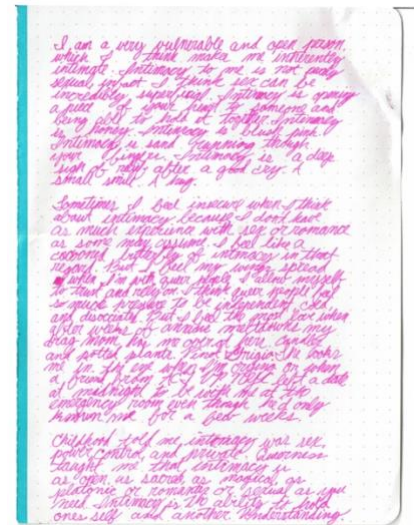 I am a very vulnerable and open person,
which I think make me inherently
intimate. Intimacy to me is not just
sexual, for sex I think sex can be
incredibly superficial. Intimacy is opening
a piece of your being to someone and
being able to hold it together. Intimacy
is honey. Intimacy is blush pink.
Intimacy is sand running though
your fingers. Intimacy is a deep
sigh of relief after a good cry. A
small smile. A hug.
Sometimes I feel insecure when I think
about intimacy because I don't have
as much experience with sex or romance
as some may assume. I feel like a
cocooned butterfly of intimacy in that
regard. But I feel my wings spread
when I'm with queer people. I allow myself
to trust and rely on them. Queer people feel
so much pressure to be independent, cold
and dissociated. But I feel the most love when
after weeks of anxious meltdowns my
drag mom, let me open at her candles
and potted plants, Pinot Grigio. She looks
me in the eye when I'm crying or when
a friend from left a date
at midnight to be with me at the
emergency room even though he'd only
known me for a few weeks.
Childhood told me intimacy was sex,
power, control, and private. Queerness
taught me that intimacy is
as open, as sacred, as magical, as
platonic or romantic or sexual as you
need. Intimacy is the ability to hold
ones self and another. Understanding.